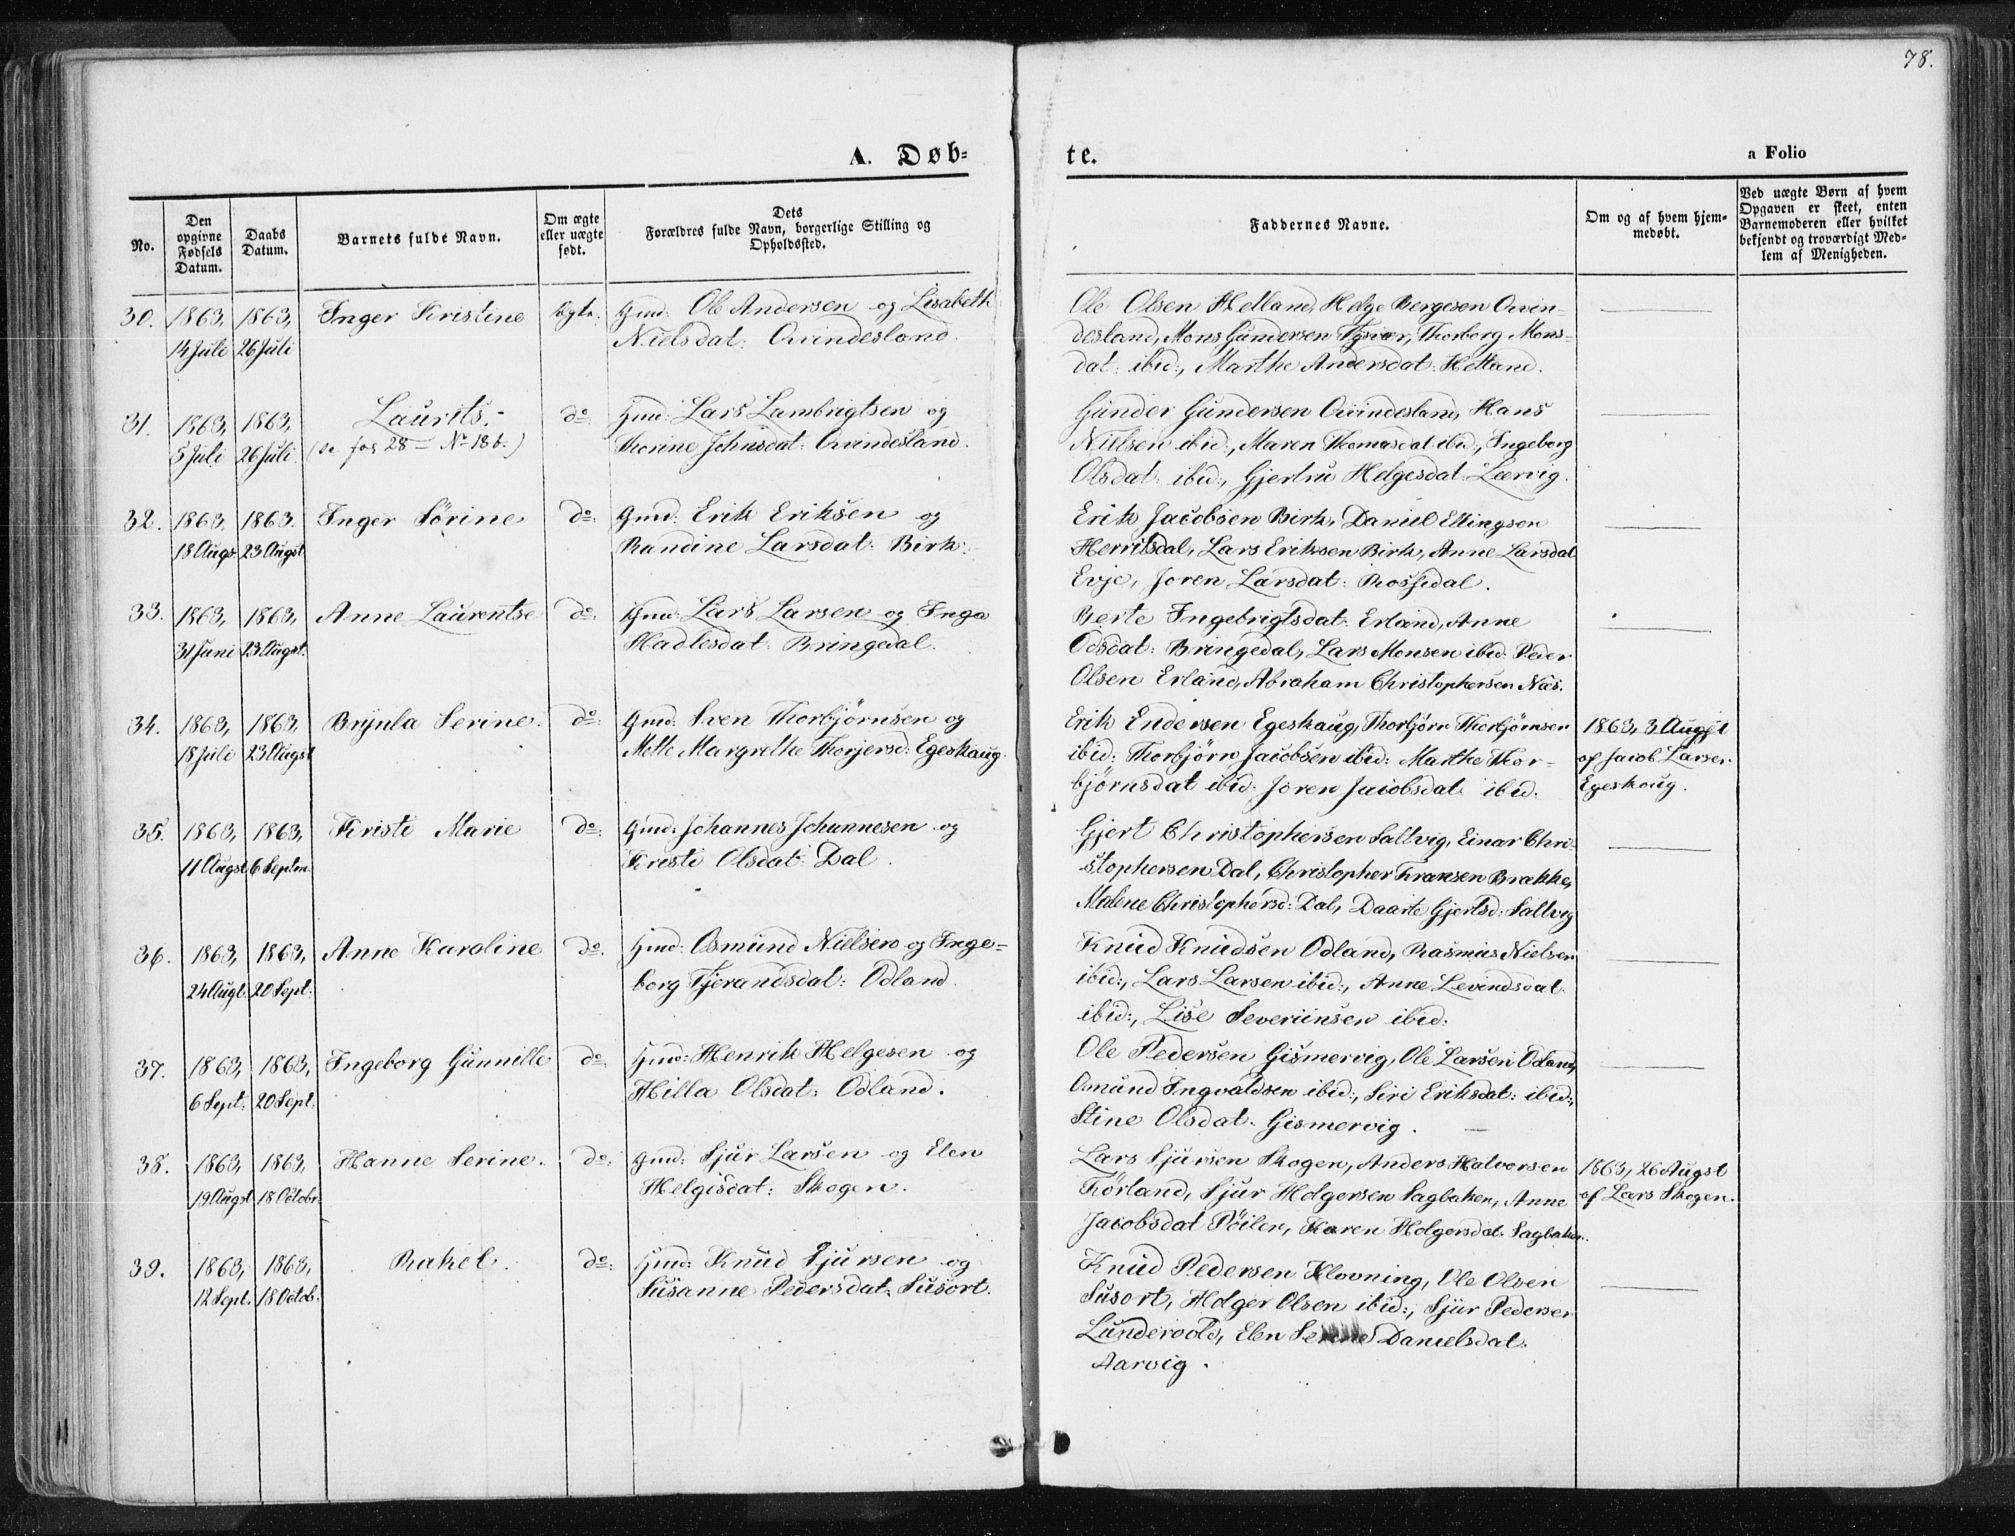 78.
A. Døb-
te.
a Folio
No.
Den
opgivne
Fødsels
Datum.
Daabs
Datum.
Barnets fulde Navn.
Om ægte
eller uægte
født.
Dets
Forældres fulde Navn, borgerlige Stilling og
Opholdssted.
Faddernes Navne.
Om og af hvem hjem-
medøbt.
Ved uægte Børn af hvem
Opgaven er skeet, enten
Barnemoderen eller hvilket
bekjendt og troværdigt Med-
lem af Menigheden.
30. 1863, 1863, Inger Kristine Ægte. Gmd: Ole Andersen og Lisabeth
14 Juli 26 Juli Nielsdat: Qvindesland.
Ole Olsen Hetland, Helge Bergesen Qvin-
desland, Mons Gundersen Tysvær, Thorborg Mons-
dat: ibid:, Marthe Andersdat: Hetland.
31. 1863, 1863, Laurits.- do: Hmd: Lars Lambrigtsen og
5 Juli 26 Juli (se fol 28 - No 18 b.) Thorine Johnsdat: Qvindesland.
Gunder Gundersen Qvindesland, Hans
Nielsen ibid:, Maren Thomasdat ibid:, Ingeborg
Olsdat: ibid:, Gjertru Helgesdat: Lærvig.
32. 1863, 1863. Inger Sørine do: Gmd: Erik Eriksen og
18 Augs 23 Augst Randine Larsdat: Birk.
Erik Jacobsen Birk, Daniel Ellingsen
Hervitsdal, Lars Eriksen Birk, Anne Larsdat
Evje, Joren Larsdat: Rossedal.
33. 1863, 1863, Anne Laurentse do: Gmd: Lars Larsen og Inga
31 Juni 23 Augst. Hadlesdat: Bringedal.
Berte Ingebrigtsdat: Erland, Anne
Odsdat: Bringedal, Lars Monsen ibid: Peder
Olsen Erland, Abraham Christophersen Næs.
34. 1863, 1863, Brynla Serine. do: Gmd: Sven Thorbjørnsen og
18 Juli 23 Augst Mette Margrethe Thorjersd: Egeskaug.
Erik Endersen Egeskaug, Thorbjørn Thorbjørnsen
ibid: Thorbjørn Jacobsen ibid: Marthe Thor-
bjørnsdat ibid: Joren Jacobsdat ibid:
1863, 3 Augst
af Jacob Larsen
Egeskoug.
35. 1863, 1863, Kristi Marie do: Gmd: Johannes Johannesen og
11 Augst 6 Septm. Kristi Olsdat: Dal.
Gjert Christophersen Saltvig, Einar Chri-
stophersen Dal, Christopher Fransen Brække,
Malene Christophersd: Dal, Daarte Gjertsd: Saltvig
36. 1863, 1863, Anne Karoline do. Hmd: Osmund Nielsen og Inge-
24 Augt. 20 Sept: borg Tjerandsdat: Odland.
Knud Knudsen Odland, Rasmus Nielsen
ibid:, Lars Larsen ibid:, Anne Levindsdat
ibid:, Lise Severiinsen ibid:
37. 1863, 1863, Ingeborg Gunnille do: Hmd: Henrik Helgesen og
6 Sept: 20 Sept: Hilla Olsdat: Odland.
Ole Pedersen Gismervig, Ole Larsen Odland,
Osmund Ingvaldsen ibid:, Siri Eriksdat: ibid:,
Stine Olsdat: Gismervig.
38. 1863, 1863, Hanne Serine. do: Gmd: Sjur Larsen og Elen
19 Augst 18 Octobr. Helgisdat: Skogen.
Lars Sjursen Skogen, Anders Halvorsen
Førland, Sjur Holgersen Sagbaken, Anne
Jacobsdat Pøiler, Karen Holgersdat Sagbaken.
1863, 26 Augst
af Lars Skogen.
39. 1863, 1863, Rakel. do: Hmd: Knud Sjursen og
12 Sept. 18 Octob. Susanne Pedersdat: Susort.
Knud Pedersen Klovning, Ole Olsen
Susort, Holger Olsen ibid:, Sjur Pedersen
Lundevold, Elen Serine Danielsdat.
Aarvig.